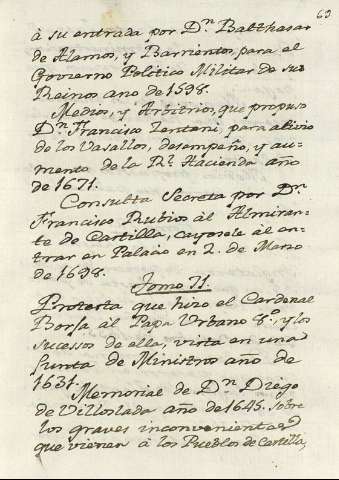 63
à su entrada por Dn. Balthasar
de Alamos, y Barrientos, para el
Govierno Politico Militar de sus
Reinos año de 1598.
Medios, y Arbitrios, que propuso
Dn. Francisco Zentani, para alivio
de los Vasallos, desempeño, y au-
mento de la Rl. Hacienda año
de 1671.
Consulta Secreta por Dn.
Francisco Rubios àl Almiran-
te de Castilla, cayosele àl en-
trar en Palacio en 2. de Marzo
de 1698.
Tomo 71.
Protesta que hizo el Cardenal
Borja àl Papa Urbano 8.º, y los
sucessos de ella, vista en una
Junta de Ministros año de
1631.
Memorial de Dn. Diego
de Villoslada año de 1645. sobre
los graves inconvenientes
que vienen à los Pueblos de Castilla,